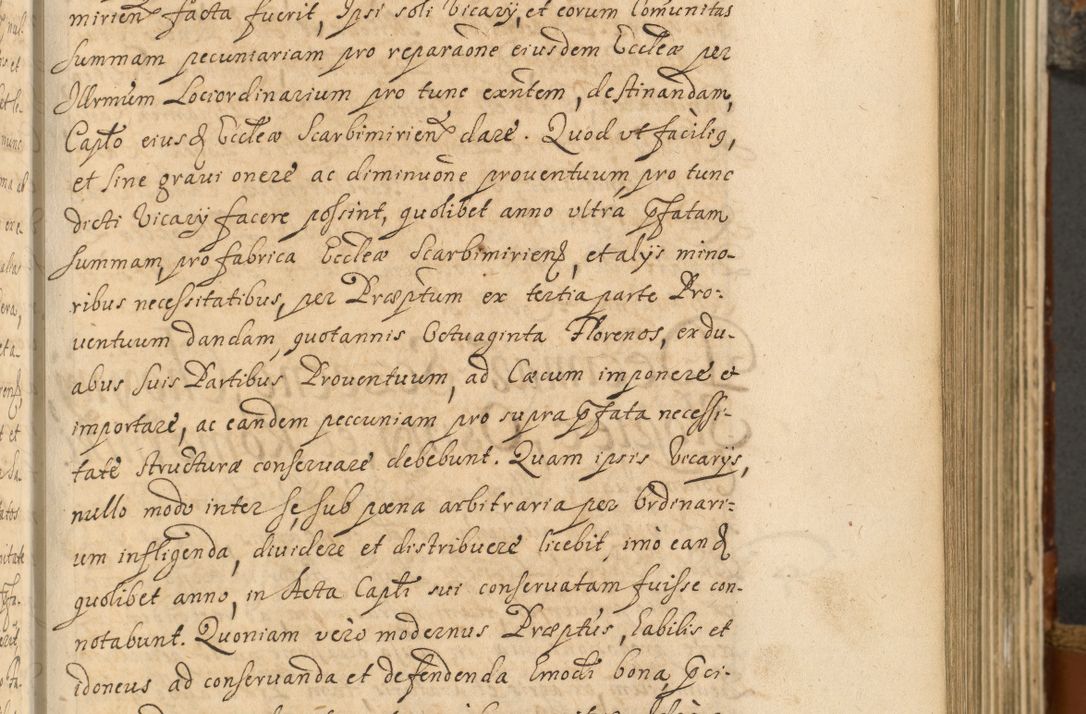 mirien facta fuerit, Ipsi soli Vicarÿ, et eorum Comunitas
summam pecuniariam pro reparaõne eiusdem Eccleæ per
Illrmũm Lociordinarium pro tunc exñtem, destinandam,
Caplo eiusd Eccleæ Scarbimirien dare. Quod vt facilig,
et sine graui onere ac diminuõne prouentuum, pro tunc
dicti Vicarÿ facere possint, quolibet anno vltra pfatam
summam, pro fabrica Eccleæ Scarbimirien, et alÿs mino-
ribus necessitatibus, per Præptum ex tertia parte Pro:
uentuum dandam, quotannis Octuaginta Florenos, ex du-
abus suis Partibus Prouentuum, ad Cæcum imponere et
importare, ac eandem peccuniam pro supra pfata necessi-
tate structuræ conseruare debebunt. Quam ipsis Vicarÿs,
nullo modo inter se, sub pœna arbitraria per Ordinari-
um infligenda, diuidere et distribuere licebit, imò eand
quolibet anno, in Acta Capli sui conseruatam fuisse con-
notabunt. Quoniam verò modernus Præptus, habilis et
idoneus ad conseruanda et defendenda Emodi bona, pci-